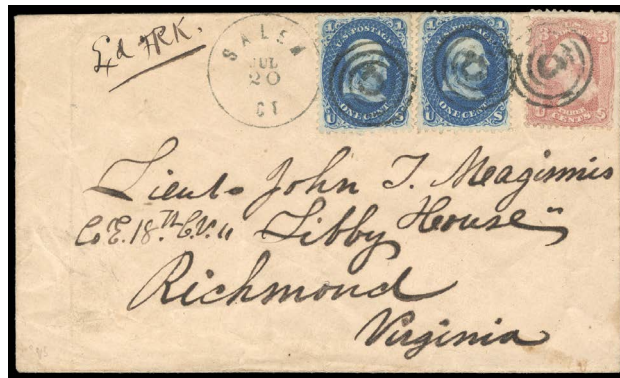 Ex^d FRK.
SALEM
JUL
20
CT
1 U.S. POSTAGE 1
ONE CENT
U S
1 U.S. POSTAGE 1
ONE CENT
U S
3 3
CENTS
U S
Lieut. John T. Meagimis
Co E. 18th C.V. " Libby House"
Richmond
Virginia